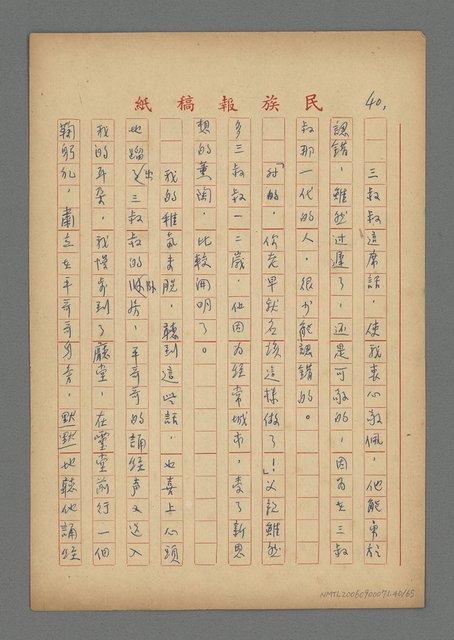 民族報稿紙
40.
三叔叔這席話，使我衷心敬佩，他能勇於
認錯，雖然过遲了，还是可敬的，因为在三叔
叔那一代的人，很少能認錯的。
「对的，你老早就应該這樣做了」！父記雖然
多三叔叔一二歲，他因为经常城市，受了新思
想的薰陶，比較開明了。
我的稚氣未脫，聽到這些話，也喜上心頭
也蹓出三叔叔的臥房，平哥哥的誦经声又送入
我的耳朶，我慢步到了廳堂，在靈堂前行一個
鞠躬礼，肅立在平哥哥身旁，默默地聽他誦经
NMTL20060900071.40/65